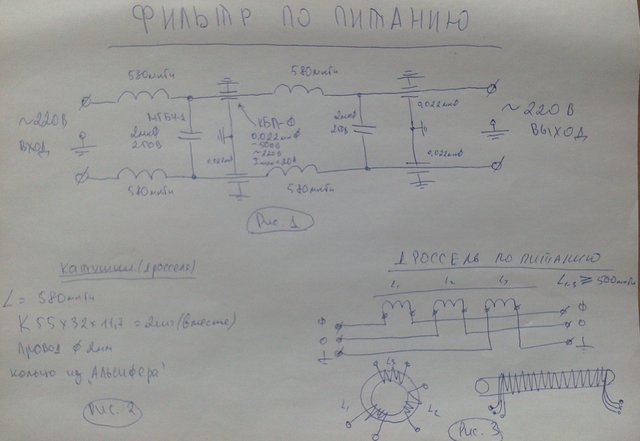 ФИЛЬТР ПО ПИТАНИЮ
580мкГн
580мкГн
~220В
ВХОД
МГБЧ-1
2мкФ
250В
0,022мкФ
КБП-Ф
0,022мкФ
~500В
~220В
I max=20А
2мкФ
250В
0,022мкФ
0,022мкФ
~220В
ВЫХОД
580мкГн
580мкГн
Рис. 1
Катушки (дросселя)
L = 580мкГн
К 55х32х11,7 = 2шт (вместе)
Провод ϕ 2мм
кольцо из „Альсифера"
Рис. 2
ДРОССЕЛЬ ПО ПИТАНИЮ
L₁ L₂ L₃
L₁₋₃ ≥ 500мкГн
Ф
О
Ф
О
L₃
L₁
L₂
Рис. 3